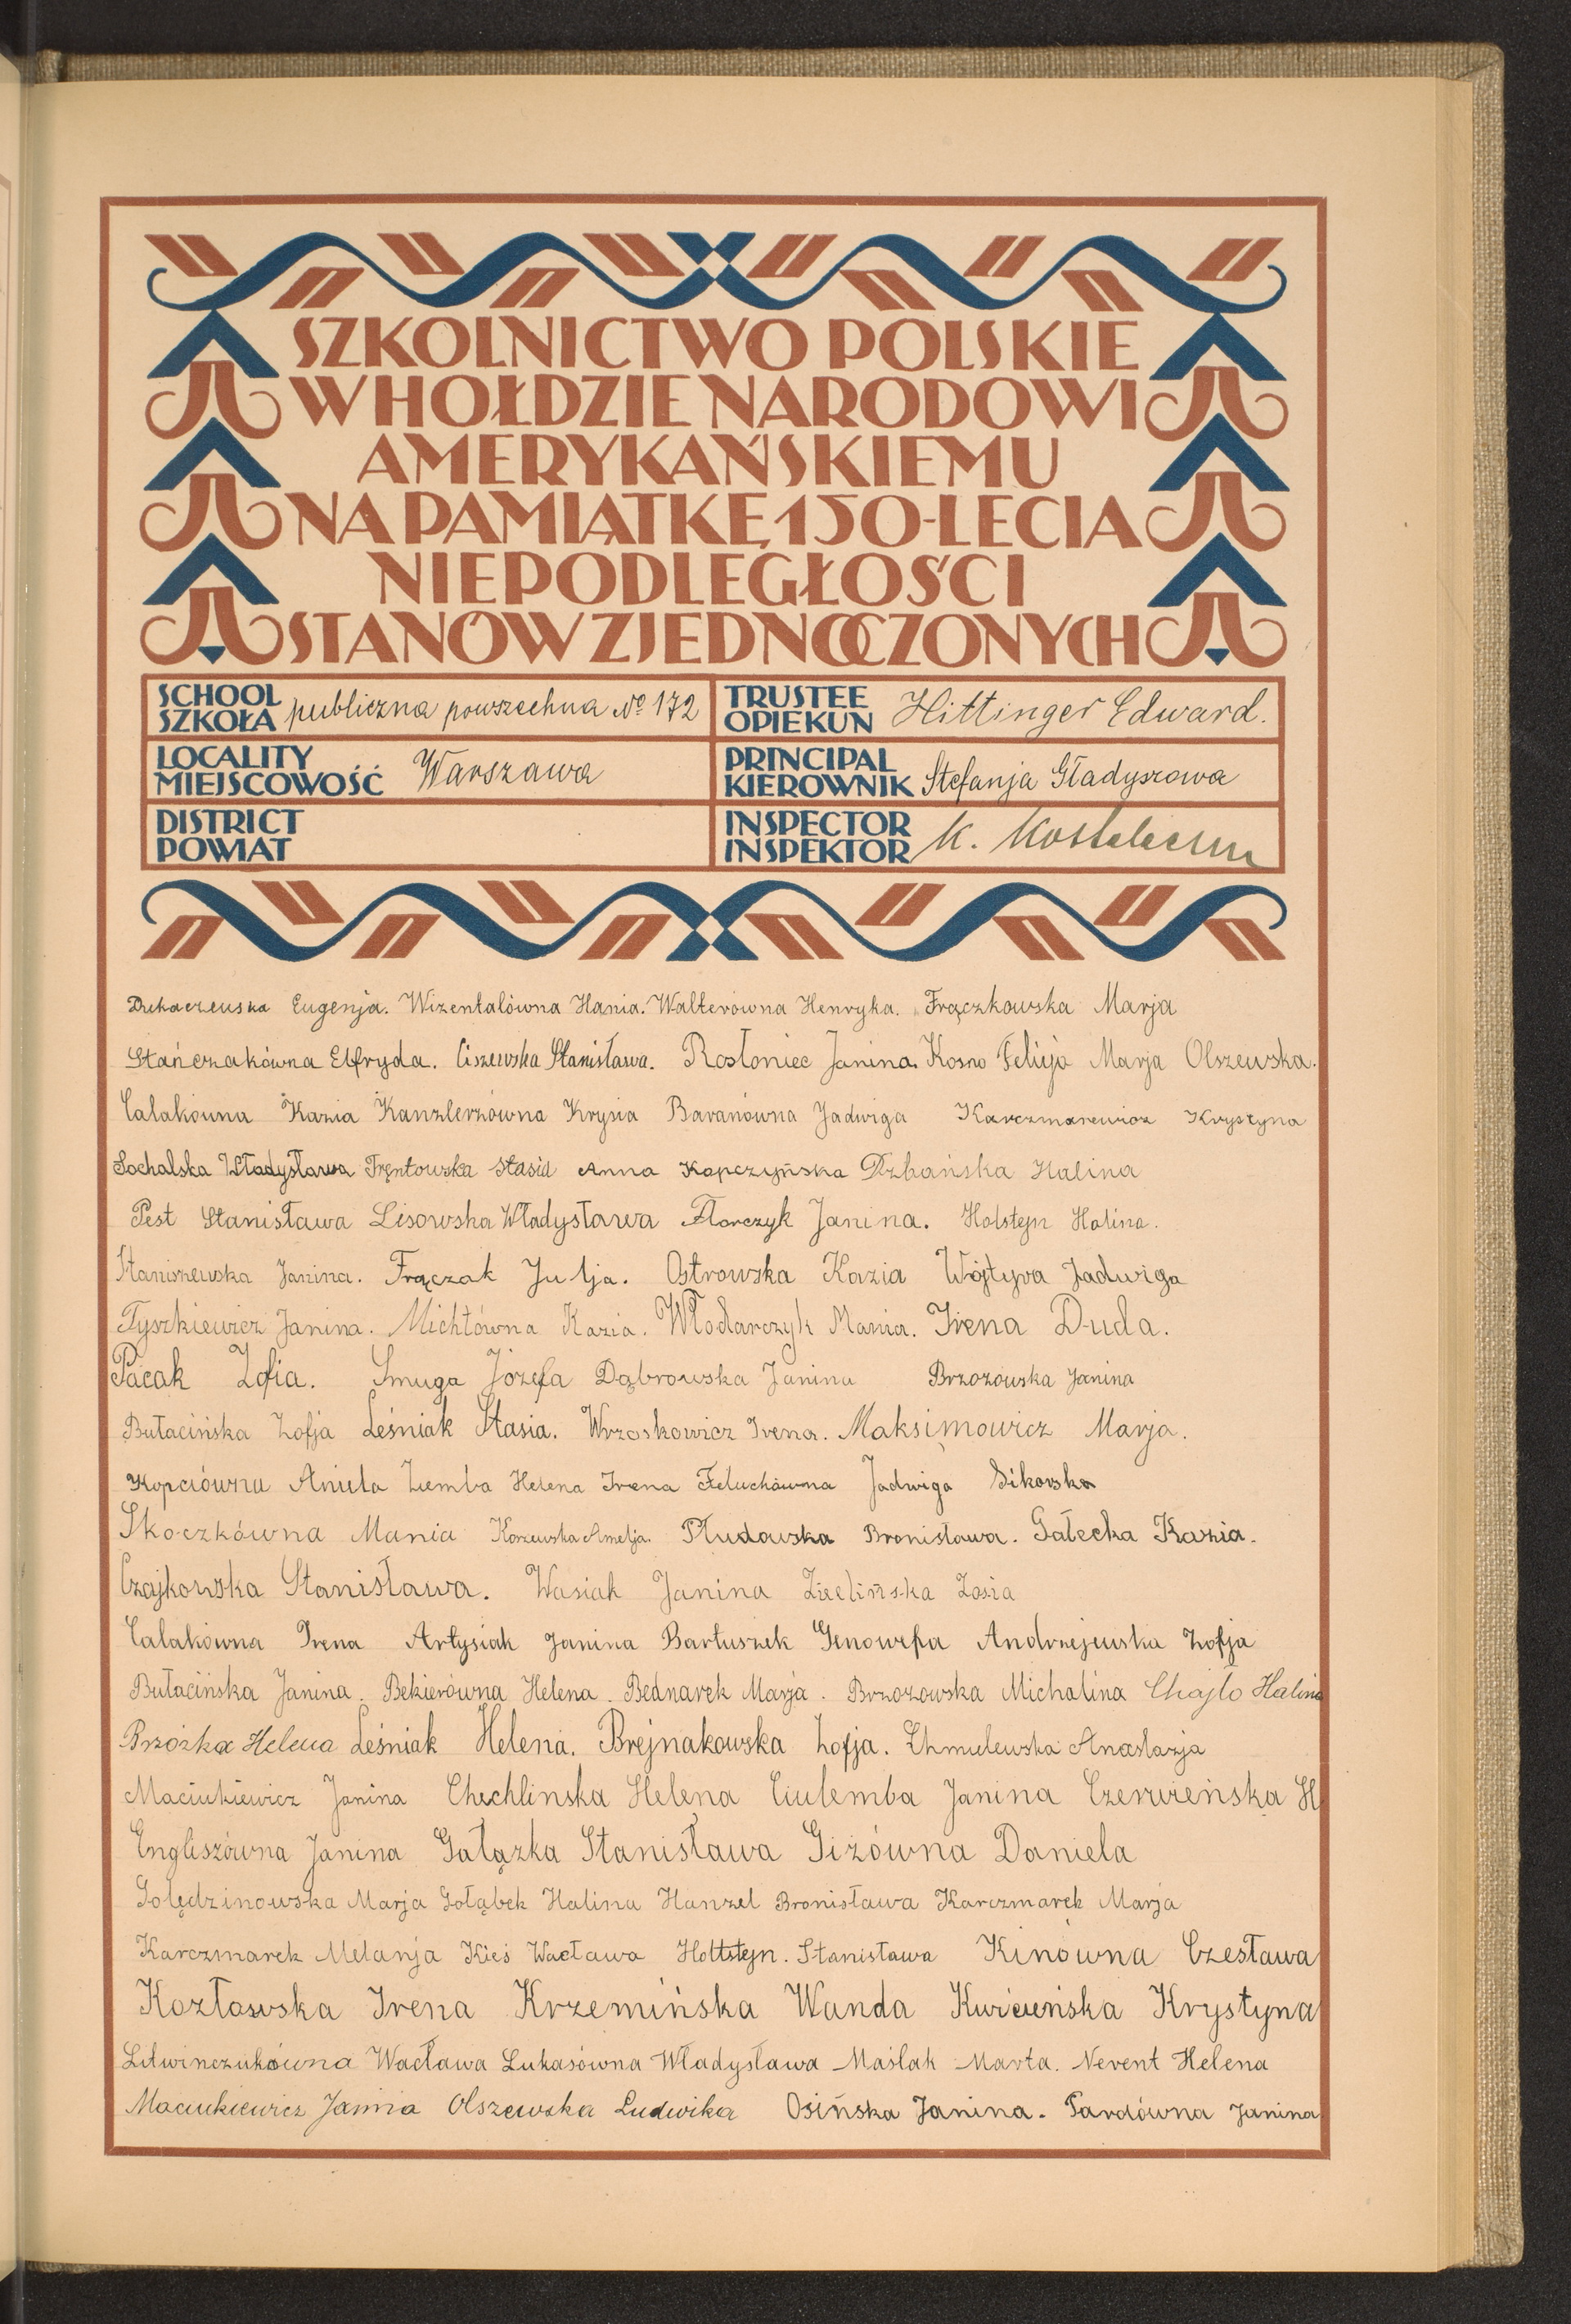 SZKOLNICTWO POLSKIE
W HOŁDZIE NARODOWI
AMERYKAŃSKIEMU
NA PAMIĄTKĘ 150-LECIA
NIEPODLEGŁOŚCI
STANÓW ZJEDNOCZONYCH
SCHOOL
SZKOŁA publiczna powszechna No 172
TRUSTEE
OPIEKUN Hittinger Edward.
LOCALITY
MIEJSCOWOŚĆ Warszawa
PRINCIPAL
KIEROWNIK Stefanja Gładyszowa
DISTRICT
POWIAT
INSPECTOR
INSPEKTOR K.
Eugenja. Wizentalówna Hania. Walterówna Henryka. Frączkowska Marja
Stańczakówna Elfryda. Ciszewska Stanisława. Rosłoniec Janina. Kosno Felicja Marja Olszewska.
Całakówna Kazia Kanzlerzówna Krysia Baranówna Jadwiga Karczmarewicz Krystyna
Sochalska Władysława Frentowska Stasia Anna Kopczyńska Dzbańska Halina
Pest Stanisława Lisowska Władysława Florczyk Janina. Holstejn Halina.
Staniszewska Janina. Frączak Julja. Ostrowska Kazia Wójtyra Jadwiga
Tyszkiewicz Janina. Michtówna Kazia. Włodarczyk Mania. Irena Duda.
Pacak Zofia. Smuga Józefa Dąbrowska Janina Brzozowska Janina
Butacińska Zofja Leśniak Stasia. Wrzoskowicz Irena. Maksimowicz Marja.
Kopciówna Aniela Ziemba Helena Irena Feluchówna Jadwiga Sikorska
Skoczkówna Mania Korzewska Amelja. Płudowska Bronisława. Gałecka Kazia.
Czajkowska Stanisława. Wasiak Janina Zielińska Zosia
Calakówna Irena Artysiak Janina Bartuszek Genowefa Andrzejewska Zofja
Butacińska Janina. Bekierówna Helena. Bednarek Marja. Brzozowska Michalina Chajło Halina
Brzózka Helena Leśniak Helena. Brejnakowska Zofja. Chmulewska Anastazja
Maciukiewicz Janina Chechlinska Helena Ciulemba Janina Czerwieńska H
Engliszówna Janina Gałązka Stanisława Giżówna Daniela
Golędzinowska Marja Gołąbek Halina Hanzel Bronisława Karczmarek Marja
Karczmarek Melanja Kieś Wacława Holtstejn. Stanisława Kinówna Czesława
Kozłowska Irena Krzemińska Wanda Kwiecińska Krystyna
Litwinczukówna Wacława Lukasówna Władysława Maślak Marta. Nevent Helena
Maciukiewicz Janina Olszewska Ludwika Osińska Janina. Pardówna Janina